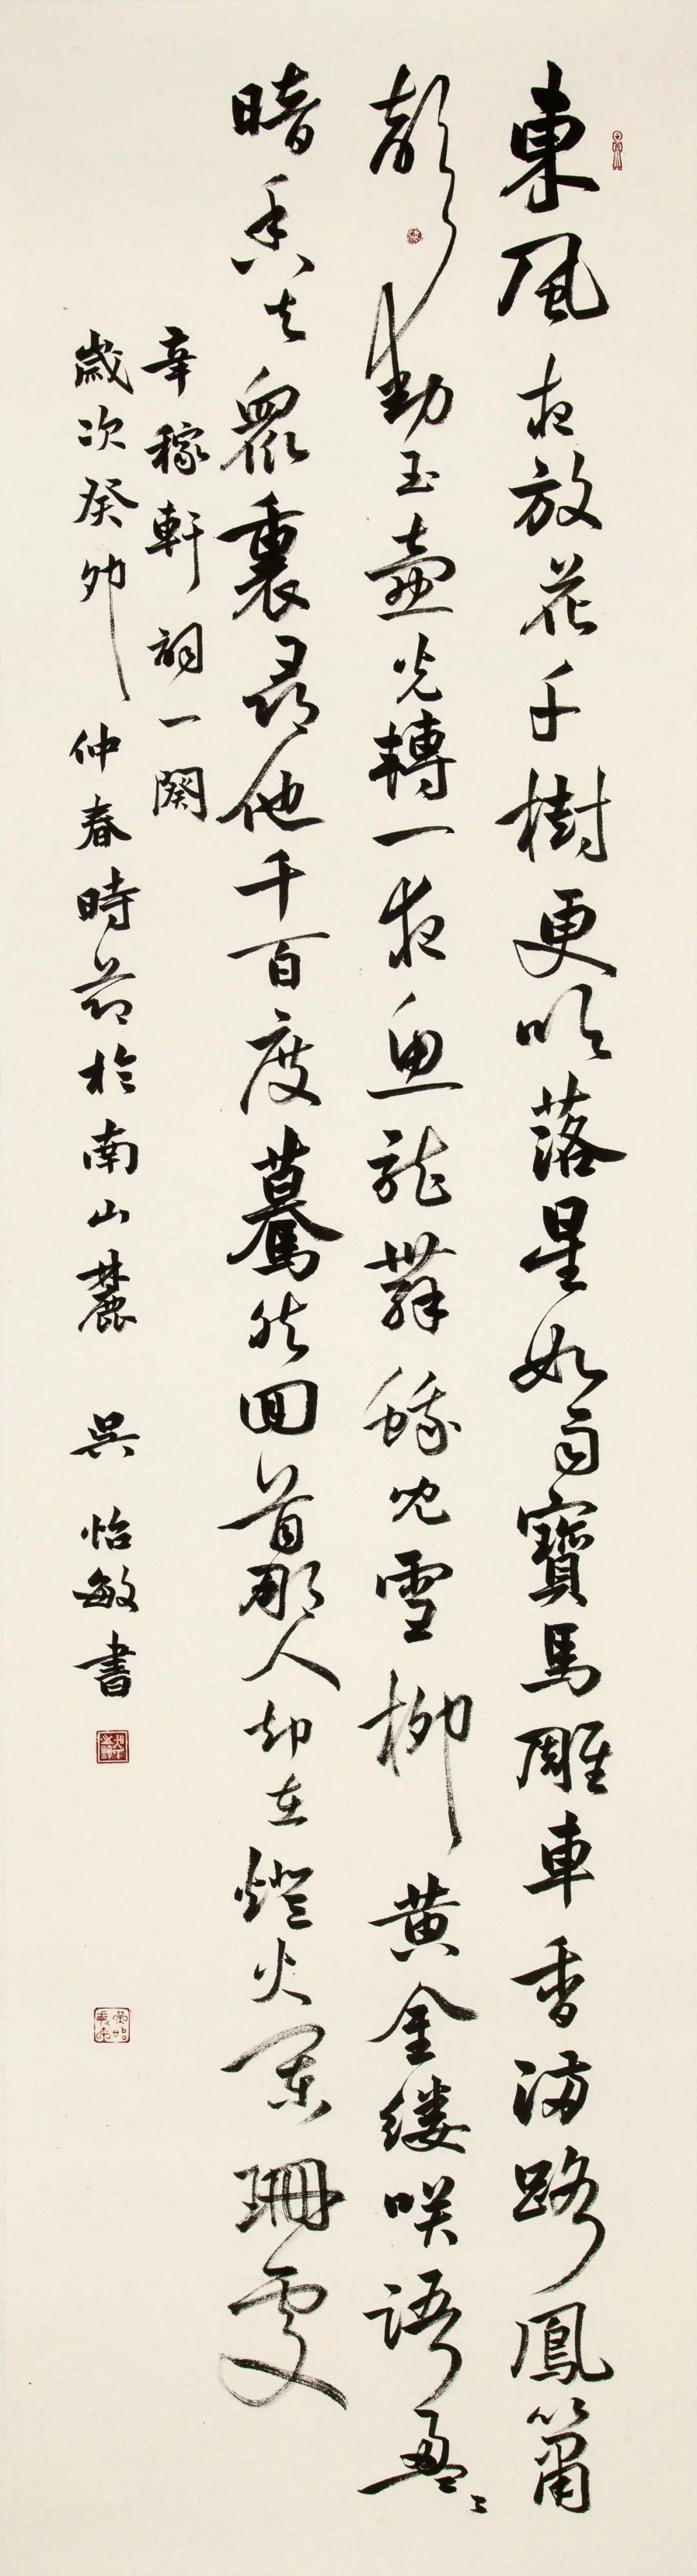 東風夜放花千樹更吹落星如雨寶馬雕車香滿路鳳簫
聲動玉壺光轉一夜魚龍舞蛾兒雪柳黃金縷笑語盈〻
暗香去眾裏尋他千百度驀然回首那人却在燈火闌珊處
辛稼軒詞一闋
歲次癸卯仲春時節於南山麓 吳怡敏書